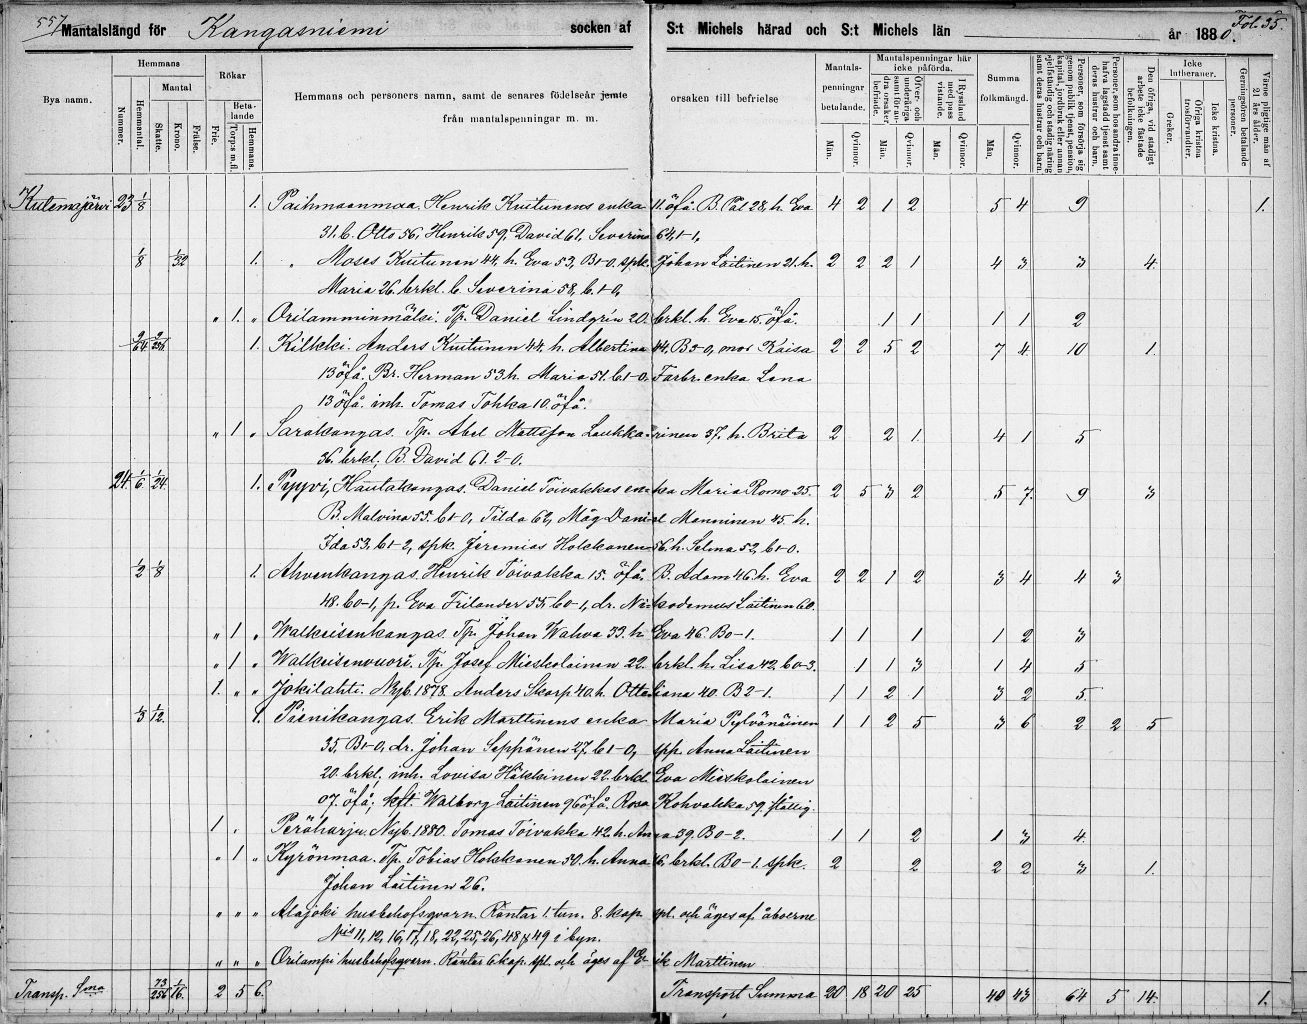 557 Mantalslängd för Kangasniemi socken af S:t Michels härad och S:t Michels län år 1880. Fol. 35.
Bya namn.
Hemmans
Nummer.
Hemmantal.
Mantal
Skatte.
Krono.
Frälse.
Rökar
Frie.
Betalande
Torp:s m. fl.
Hemmans.
Hemmans och personers namn, samt de senares födelseår jemte orsaken till befrielse
från mantalspenningar m. m.
Mantalspenningar betalande.
Män.
Qvinnor.
Mantalspenningar här icke påförda.
Öfver- och underåriga samt för andra orsaker befriade.
Män.
Qvinnor.
I Ryssland med pass vistande.
Män.
Qvinnor.
Summa folkmängd.
Män.
Qvinnor.
Personer, som försörja sig genom publik tjenst, pension, kapital, jordbruk eller annan sjelfständig och stadig näring samt deras hustrur och barn.
Personer, som hos andra innehafva lagstadd tjenst samt deras hustrur och barn.
Den öfriga, vid stadigt arbete icke fästade befolkningen.
Icke lutheraner.
Greker.
Öfriga kristna trosförvandter.
Icke kristna.
Gerningsören betalande personer.
Värnepligtige män af 21 års ålder.
Kutemajärvi 23 1/8 1. Paihmaanmaa. Henrik Kuitunens enka 11 öfå. B. Pål 28, h. Eva 4 2 1 2 5 4 9 1.
31. b. Otto 56, Henrik 59, David 61, Severina 64, 1-1,
1/8 1/32 1. " Moses Kuitunen 44, h. Eva 53, B1-0. spk. Johan Laitinen 21. h. 2 2 2 1 4 3 3 4.
Maria 26. brkl. b. Severina 58, b. 1-0,
" 1. " Orilamminmäki. Tp. Daniel Lindgrén 20. brkl. h. Eva 15. öfå. 1 1 1 1 2
9/64 9/256 1. Kilkki. Anders Kuitunen 44, h. Albertina 44. B 3-0, mor Kaisa 2 2 5 2 7 4 10 1.
13 öfå. Br. Herman 53. h. Maria 51. b. 1-0. Farbr. enka Lena
13 öfå. inh. Tomas Tohka 10. öfå.
" 1 " Sarakangas. Tp. Abel Mattsson Laukkarinen 37. h. Brita 2 2 1 4 1 5
36. brkl. B. David 61. 2-0.
24. 1/6 1/24. 1. Pyyvi, Hautakangas. Daniel Toivakkas enka Maria Romo 25. 2 5 3 2 5 7. 9 3
B. Malvina 55. b 1-0, Tilda 62, Måg Daniel Manninen 45. h.
Ida 53. b 1-2, spk. Jeremias Hokkanen 56. h. Selma 52, b 1-0.
1/2 1/8 1. Ahvenkangas. Henrik Toivakka 15. öfå. B. Adam 46. h. Eva 2 2 1 2 3 4 4 3
48. b 0-1, p. Eva Frilander 55. b 0-1, dr. Nikodemus Laitinen 60.
" 1 " Walkeisenkangas. Tp. Johan Wahva 33. h. Eva 46. B 0-1. 1 1 1 1 2 3
" 1 " Walkeisenvuori. Tp. Josef Mieskolainen 22. brkl. h. Lisa 42. b 0-3. 1 1 3 1 4 5
1. " " Jokilahti. Nyb. 1878. Anders Skorp 40. h. Ottiliana 40. B 2-1. 1 1 2 1 3 2 5
1/3 1/12. 1. Pienikangas. Erik Marttinens enka Maria Pylvänäinen 1 1 2 5 3 6 2 2 5
35. B 1-0, dr. Johan Seppänen 27. b 1-0, spp. Anna Laitinen
20. brkl, inh. Lovisa Häkkinen 22. brkl. Eva Mieskolainen
07. öfå, kft. Walborg Laitinen 96 öfå. Rosa Kohvakka 59. fattig.
1 . Peräharju. Nyb. 1880. Tomas Toivakka 42. h. Anna 39. B 0-2. 1 1 2 1 3 4.
" 1 " Kyrönmaa. Tp. Tobias Hokkanen 50. h. Anna 16. brkl. B 0-1. spk. 2 2 2 2 3 1.
Johan Laitinen 26.
" " " Alajoki husbehofsqvarn. Räntar 1. tun. 8. kap. spl. och äges af åboerne
N:is 11, 12, 16, 17, 18, 22, 25, 26, 48 & 49 i byn.
" " " Orilampi husbehofsqvarn. Räntar 6 kap. spl. och äges af Erik Marttinen
Transp. S:ma 73/256 1/16. 2 5 6. Transport Summa 20 18 20 25 40 43 64 5 14 1.